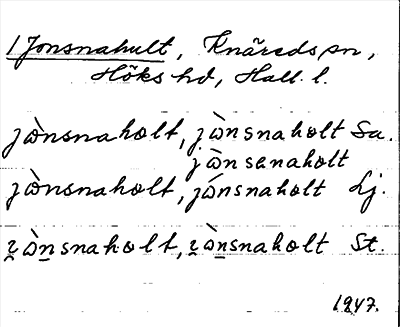 1 Jonsnahult, Knäreds sn,
Höks hd, Hall. l.
jònsnahαlt, jònsnahαlt Sa.
jònsenahαlt
jònsnahαlt, jónsnahαlt Lj.
ònsnahαlt, ònsnahαlt St.
1947.